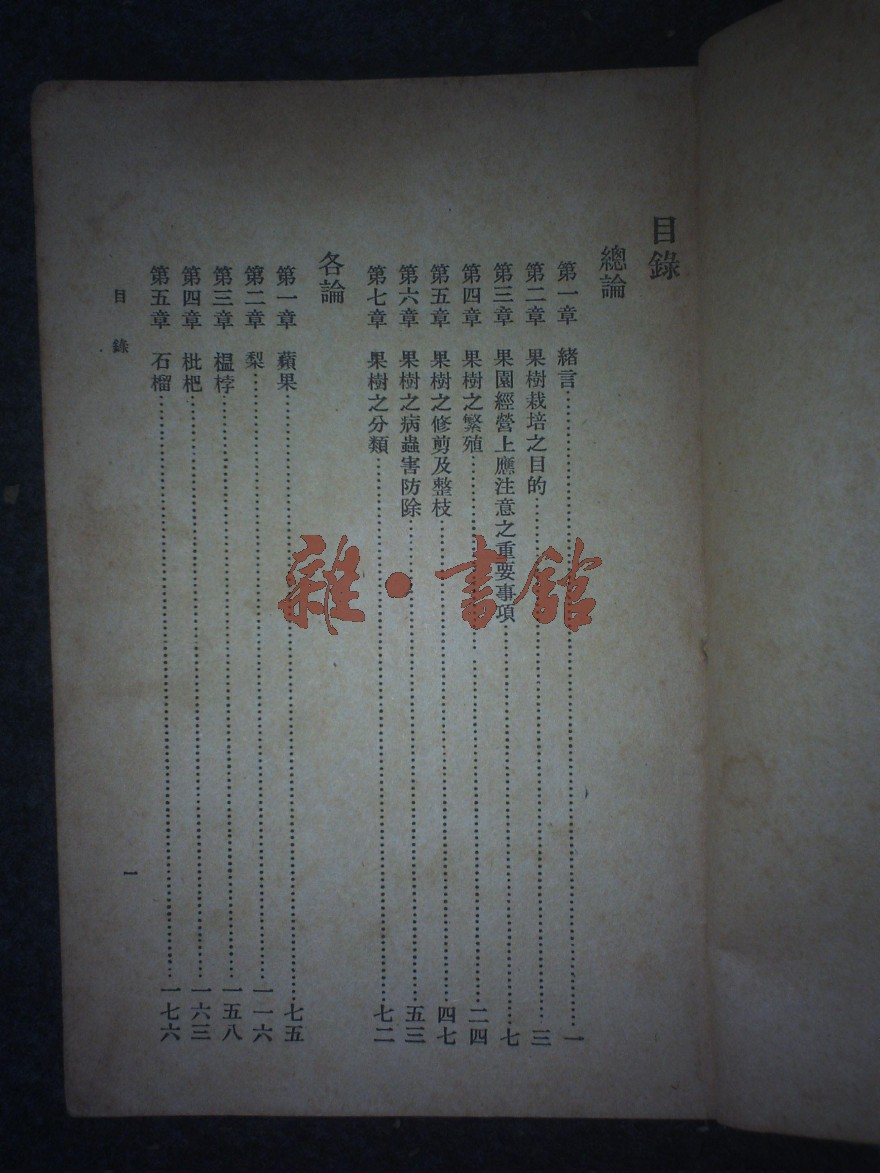 目錄
總論
第一章 緒言……一
第二章 果樹栽培之目的……三
第三章 果園經營上應注意之重要事項……七
第四章 果樹之繁殖……二四
第五章 果樹之修剪及整枝……四七
第六章 果樹之病蟲害防除……五三
第七章 果樹之分類……七二
各論
第一章 蘋果……七五
第二章 梨……一一六
第三章 榲桲……一五八
第四章 枇杷……一六三
第五章 石榴……一七六
目錄
一
雜·書館